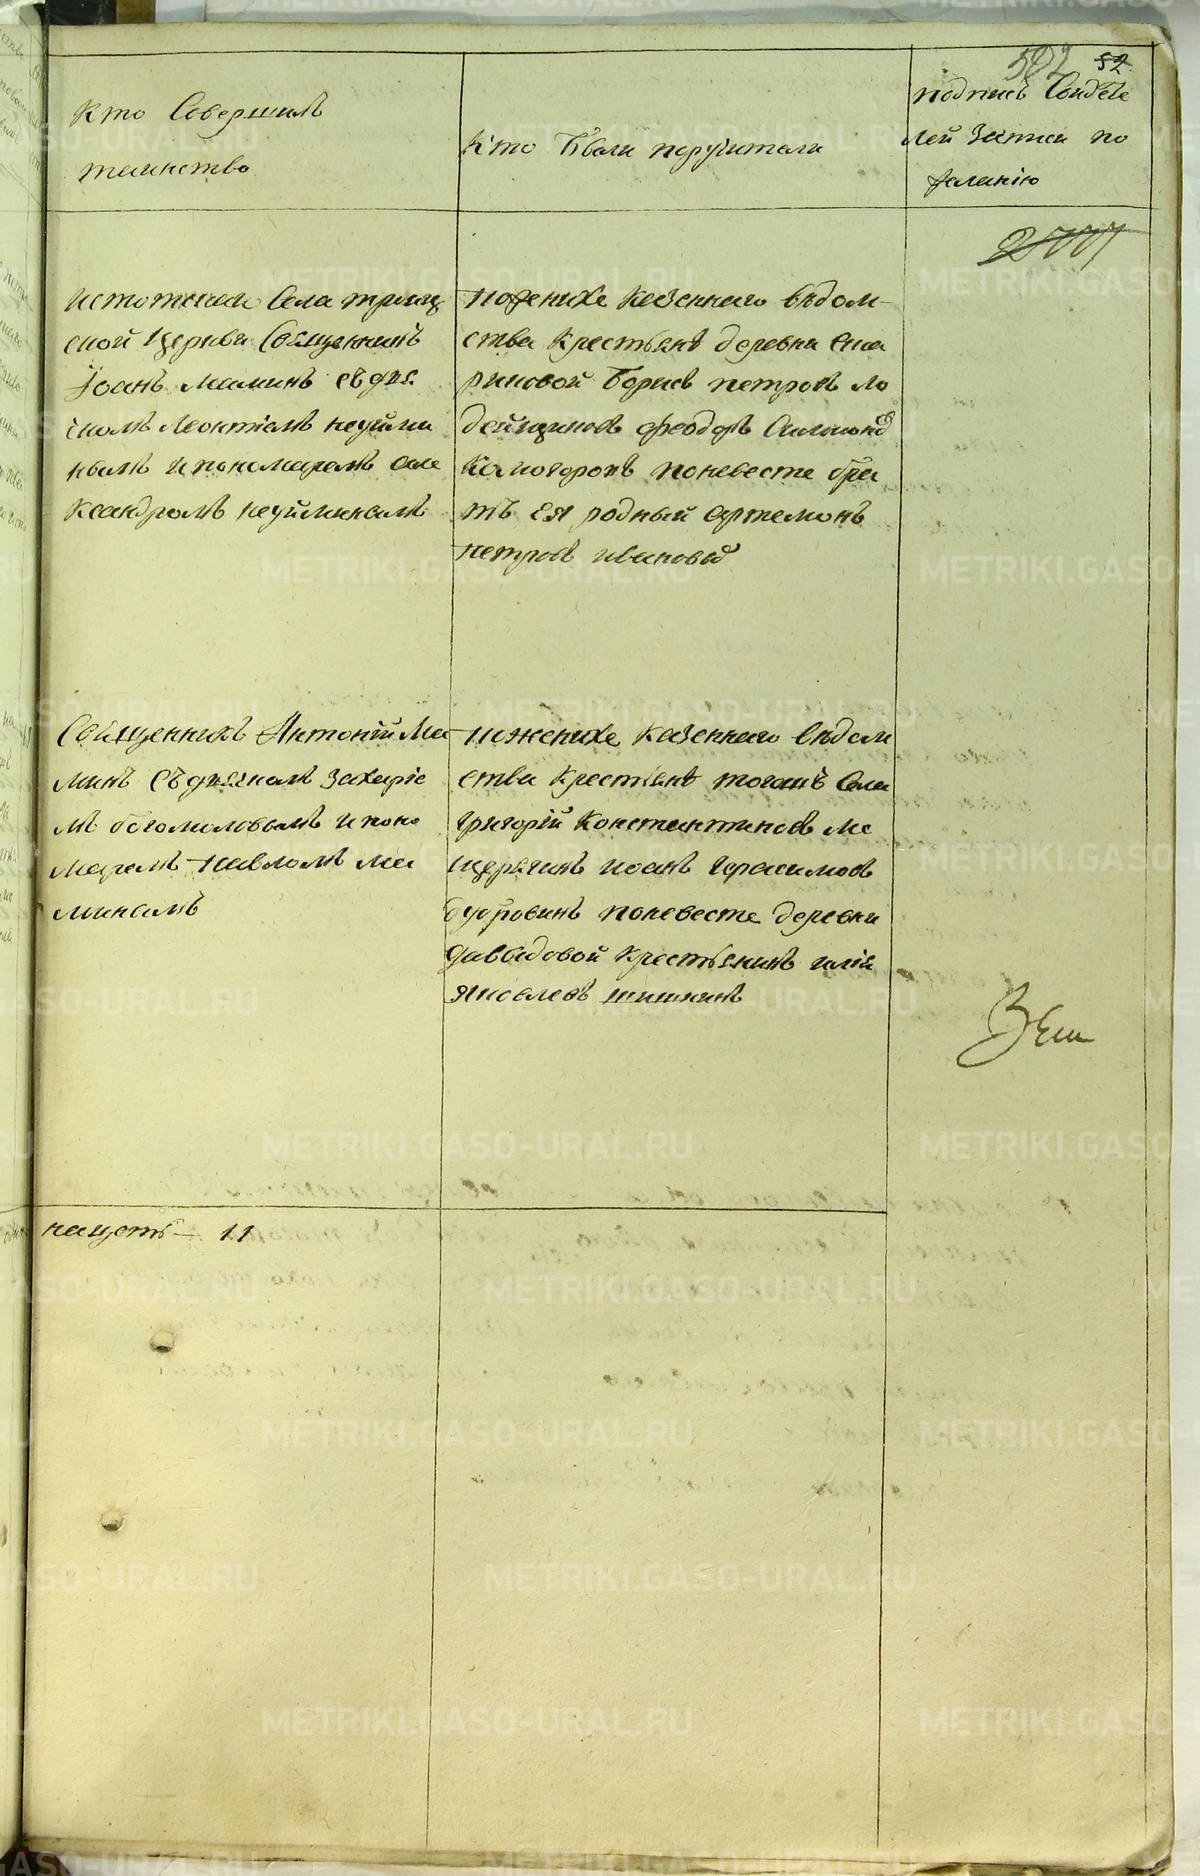 52
Кто Совершилъ
таинство
Кто Были поручители
подпись Свидѣте
лей Записи по
желанію
Истотскаго Села троиц
ской Церкви Священникъ
Іоанъ Маминъ съ дья
кономъ Леонтіемъ неуйми
нымъ и пономаремъ але
ксандромъ неуйминымъ
пожениху казеннаго вѣдом
ства крестьянѣ деревни
Борисъ петровъ ло
дейщиковъ феодоръ
поневесте бра
тъ ея родный артемонъ
петровъ ивановъ
Священникъ Антоній Ма
минъ съ дьякомъ Захаріе
мъ богомоловымъ и поно
маремъ павломъ ма
минымъ
пожениху казеннаго вѣдом
ства крестьянѣ тогожъ Села
григорій Константиновъ ме
щерягинъ иоанъ герасимовъ
бубровинъ поневесте деревни
давыдовой крестьянинъ илія
яковлевъ шишкинъ
начетъ — 11
METRIKI.GASO-URAL.RU